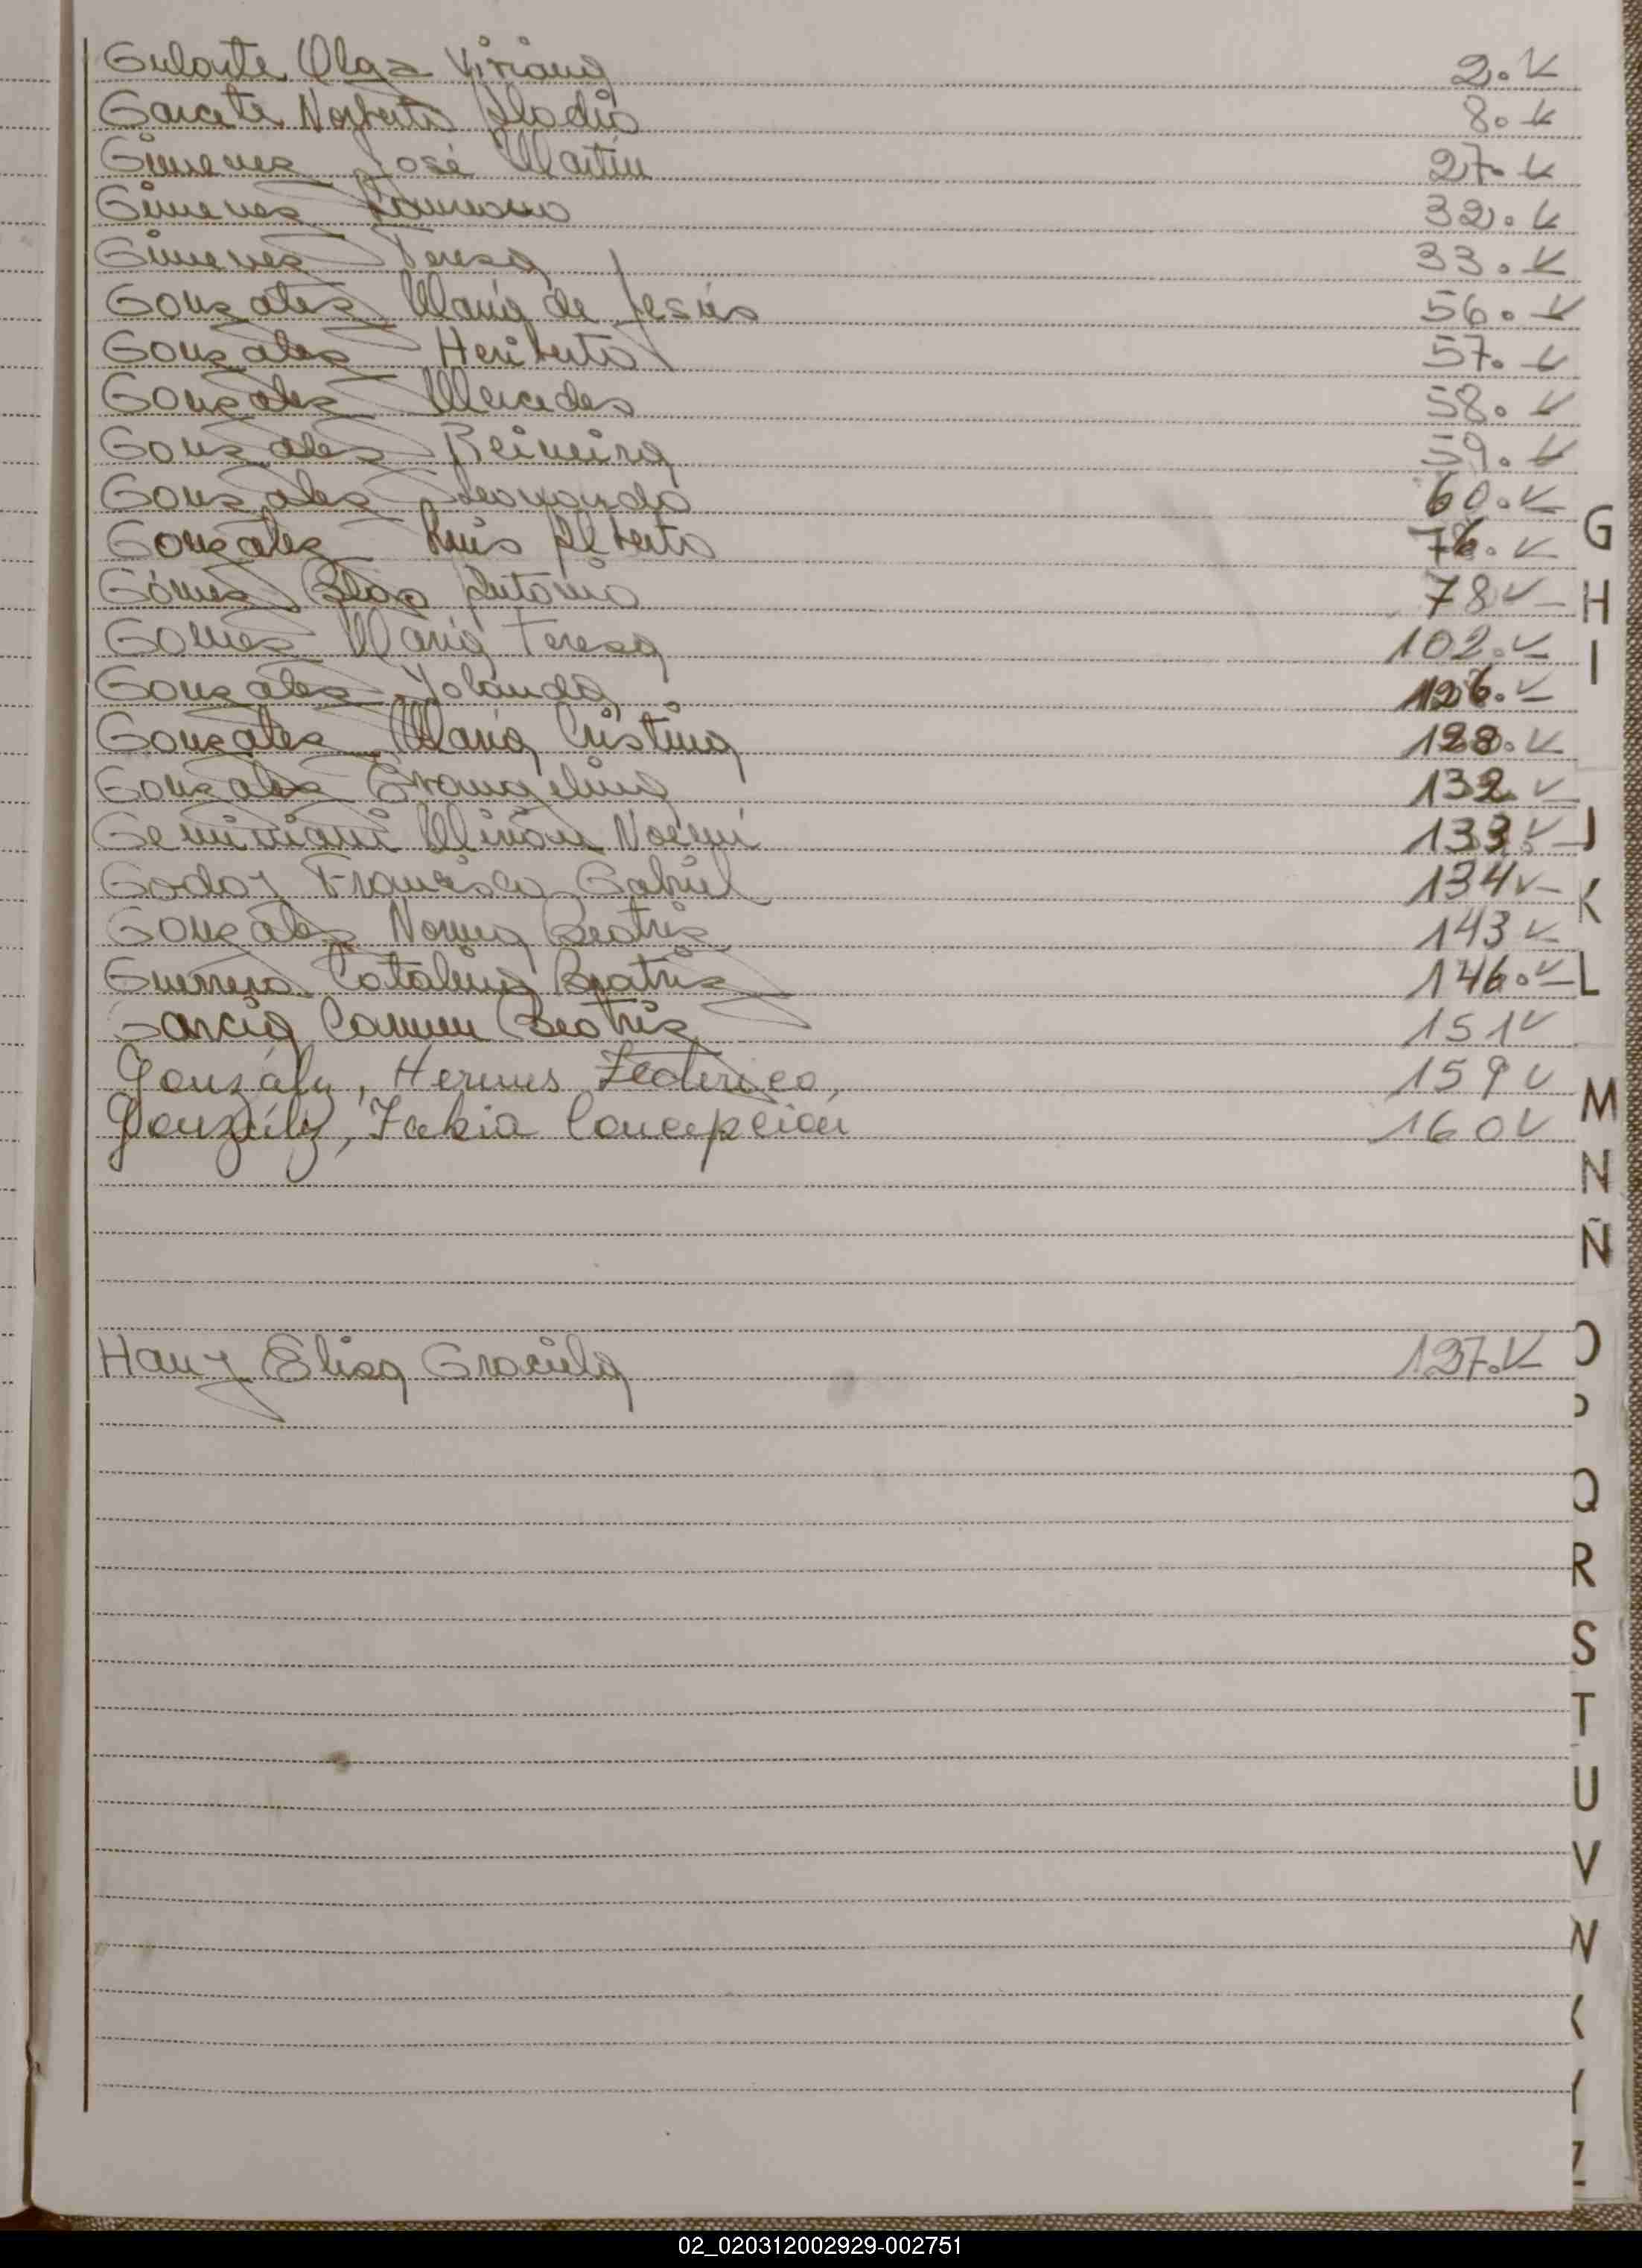 Gularte Olga Viviana 2. ✓
Garcete Norberto Eladio 8. ✓
Gimenez José Martin 27. ✓
Gimenez Romano 32. ✓
Gimenez Teresa 33. ✓
Gonzalez Maria de Jesús 56. ✓
Gonzalez Heriberto 57. ✓
Gonzalez Mercedes 58. ✓
Gonzalez 59. ✓
Gonzalez Leonardo 60. ✓
Gonzalez Luis Alberto 76. ✓
Gómez Blas Antonio 78 ✓
Gomez Maria Teresa 102. ✓
Gonzalez Yolanda 126. ✓
Gonzalez Maria Cristina 128. ✓
Gonzalez Evangelina 132 ✓
Geminiani Miriam Noemi 133. ✓
Godoy Francisco Gabriel 134 ✓
Gonzalez Norma Beatriz 143 ✓
Guerrero Catalina Beatriz 146. ✓
Garcia Carmen Beatriz 151 ✓
González, Hermes Federico, 159 ✓
González, Fabia Concepcion 160 ✓
Hany Elisa Graciela 137. ✓
G
H
I
J
K
L
M
N
Ñ
O
P
Q
R
S
T
U
V
Z
02_020312002929-002751